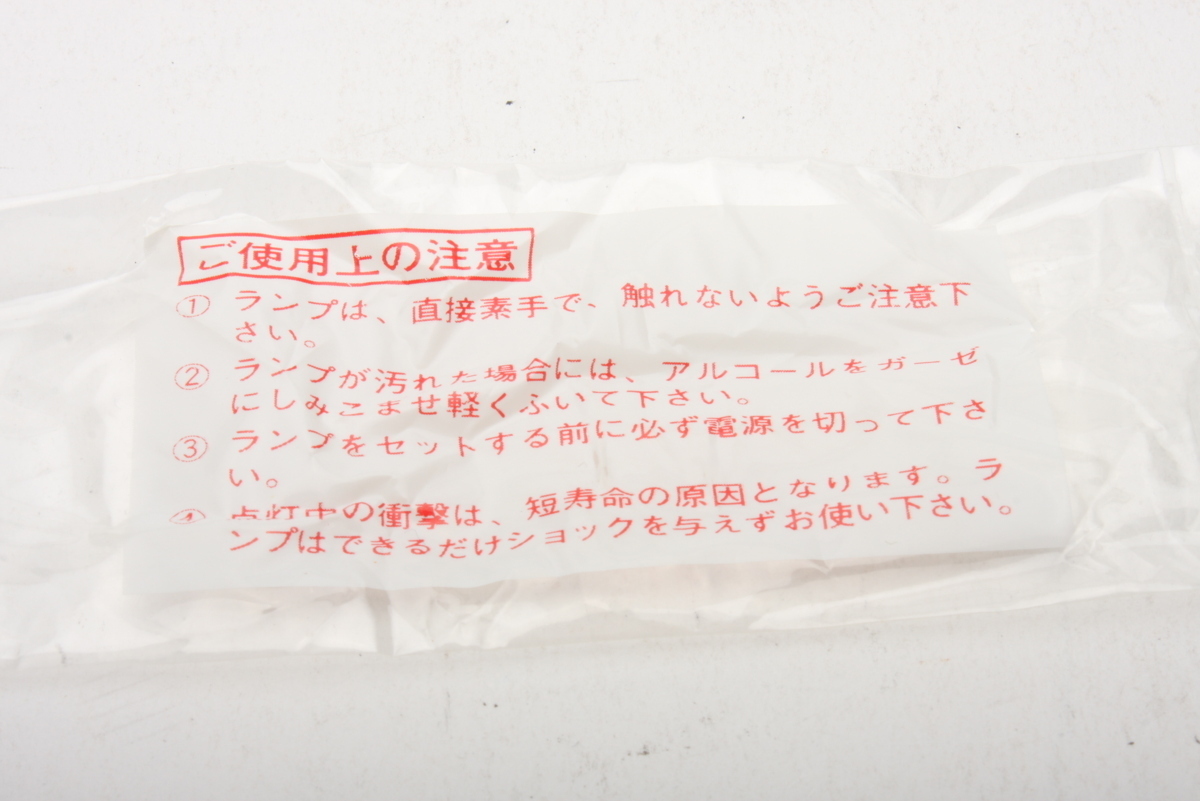 ご使用上の注意
① ランプは、直接素手で、触れないようご注意下
さい。
② ランプが汚れた場合には、アルコールをガーゼ
にしみこませ軽くふいて下さい。
③ ランプをセットする前に必ず電源を切って下さ
い。
④ 点灯中の衝撃は、短寿命の原因となります。ラ
ンプはできるだけショックを与えずお使い下さい。